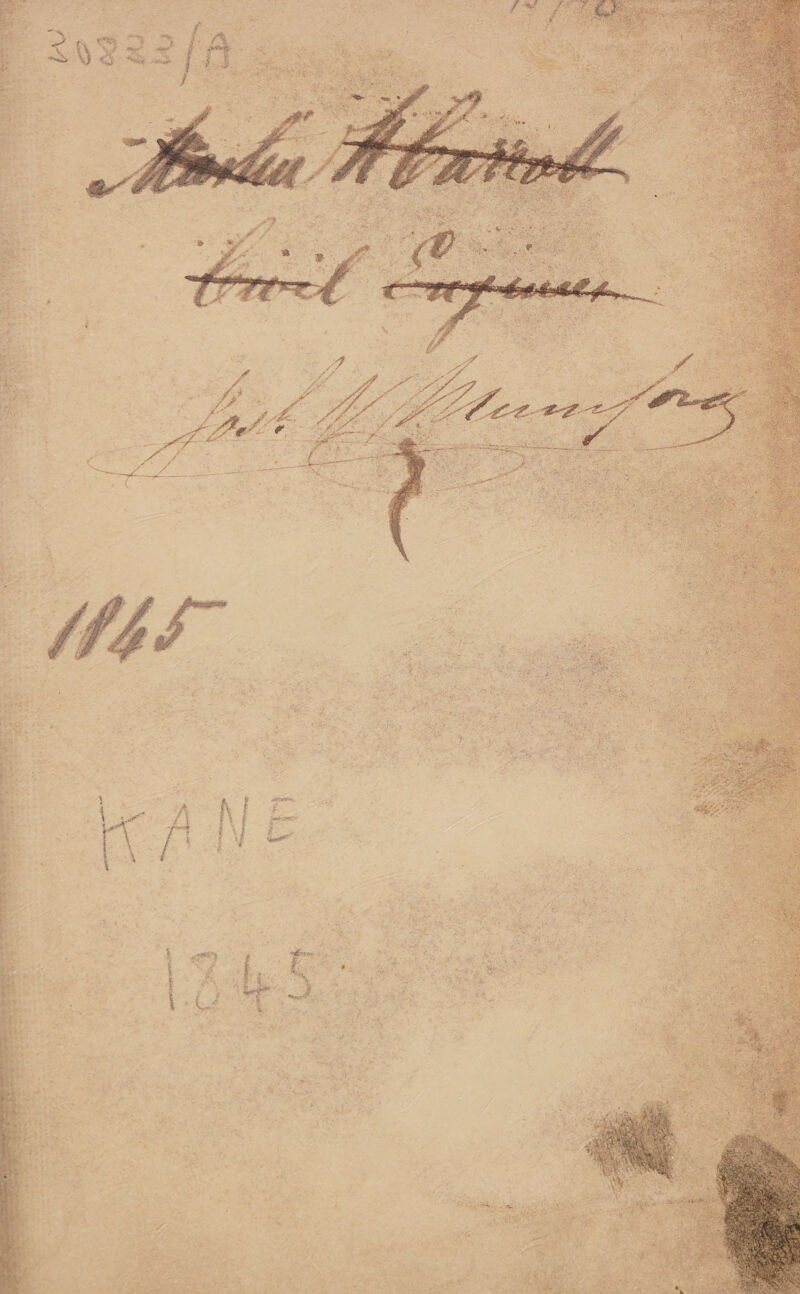 30833/A
Martin H Carroll
Civil Engineer
Josh W Mumford
1845
KANE
1845